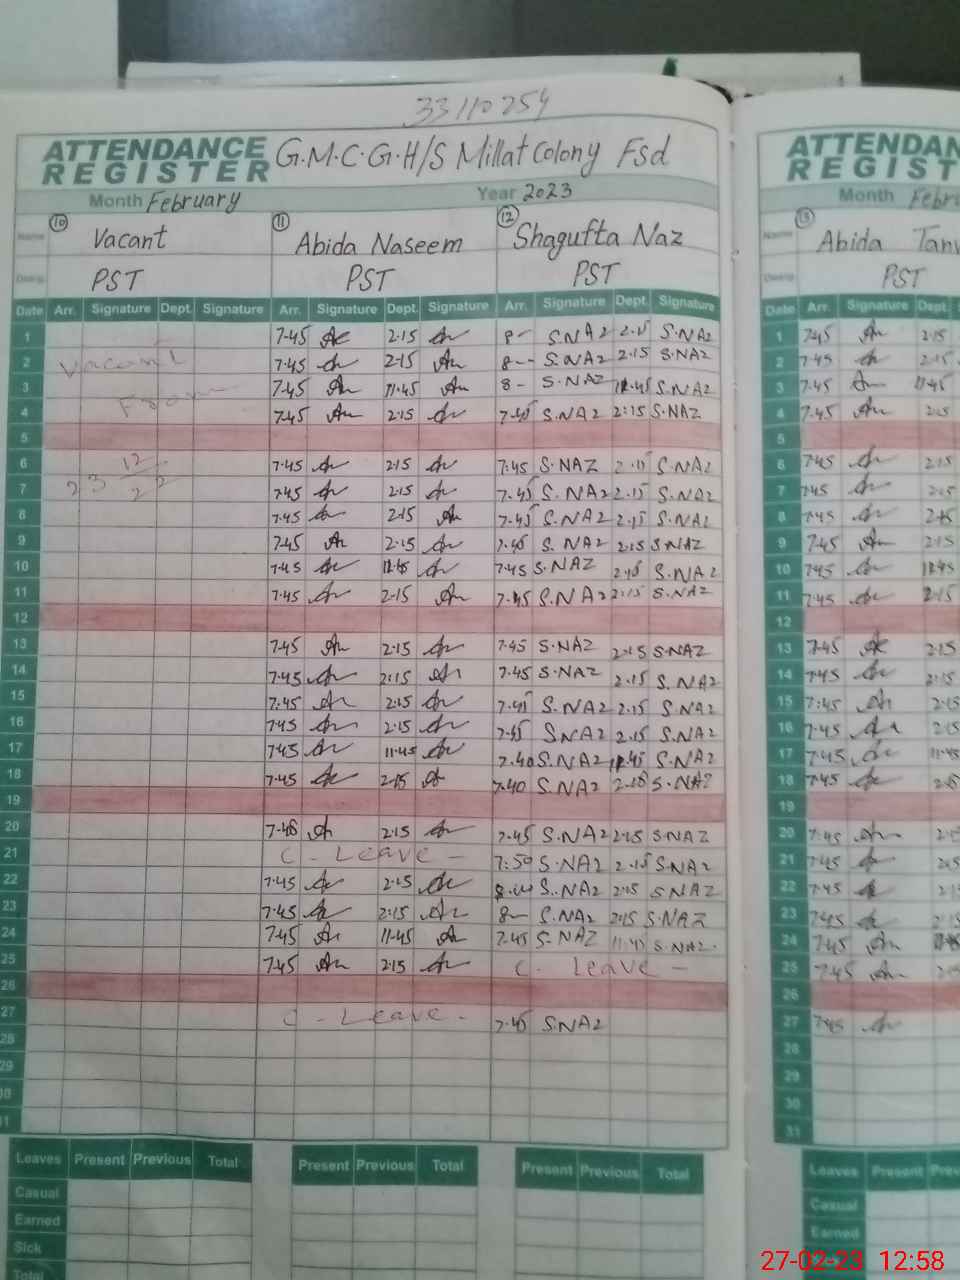 33110254
ATTENDANCE REGISTER G.M.C.G.H/S Millat Colony Fsd
Month February Year 2023
10 11 12
Name Vacant Abida Naseem Shagufta Naz
Desig: PST PST PST
Date Arr. Signature Dept. Signature Arr. Signature Dept. Signature Arr. Signature Dept. Signature
1 7.45 2.15 8- S.NAZ 2.15 S.NAZ
2 Vacant 7.45 2.15 8-- S.NAZ 2.15 S.NAZ
3 From 7.45 11.45 8- S.NAZ 11.45 S.NAZ
4 7.45 2.15 7.45 S.NAZ 2:15 S.NAZ
5
6 7.45 2.15 7:45 S.NAZ 2.15 S.NAZ
7 7.45 2.15 7.45 S.NAZ 2.15 S.NAZ
8 7.45 2.15 7.45 S.NAZ 2.15 S.NAZ
9 7.45 2.15 7.45 S.NAZ 2.15 S.NAZ
10 7.45 7.45 S.NAZ 2.15 S.NAZ
11 7.45 2.15 7.45 S.NAZ 2:15 S.NAZ
12
13 7.45 2.15 7.45 S.NAZ 2.15 S.NAZ
14 7.45 2:15 7.45 S.NAZ 2.15 S.NAZ
15 7:45 2.15 7.45 S.NAZ 2.15 S.NAZ
16 7.45 2.15 7.45 S.NAZ 2.15 S.NAZ
17 7.45 11.45 7.40 S.NAZ 11.45 S.NAZ
18 7.45 2.15 7.40 S.NAZ 2.15 S.NAZ
19
20 7.45 2.15 7.45 S.NAZ 2.15 S.NAZ
21 C - Leave - 7:50 S.NAZ 2.15 S.NAZ
22 7.45 2.15 S.NAZ 2.15 S.NAZ
23 7.45 2:15 8- S.NAZ 2.15 S.NAZ
24 7.45 11.45 7.45 S.NAZ 11.45 S.NAZ.
25 7.45 2.15 C. Leave -
26
27 C - Leave. - 7.45 S.NAZ
28
29
30
31
Leaves Present Previous Total Present Previous Total Present Previous Total
Casual
Earned
Sick
Total
13
Abida
PST
Date Arr. Signature Dept.
1 7.45 2.15
2 7.45 2.15
3 7.45 11.45
4 7.45 2.15
5
6 7.45 2.15
7 7.45 2.15
8 7.45 2.15
9 7.45 2.15
10 7.45 11.45
11 7.45 2.15
12
13 7.45 2.15
14 7.45 2:15
15 7:45 2.15
16 7.45 2.15
17 7.45 11.45
18 7.45 2.15
19
20 7.45
21 7.45
22 7.45
23 7.45
24 7.45
25 7.45
26
27 7.45
28
29
30
31
Leaves Present
Casual
Earned
27-02-23 12:58